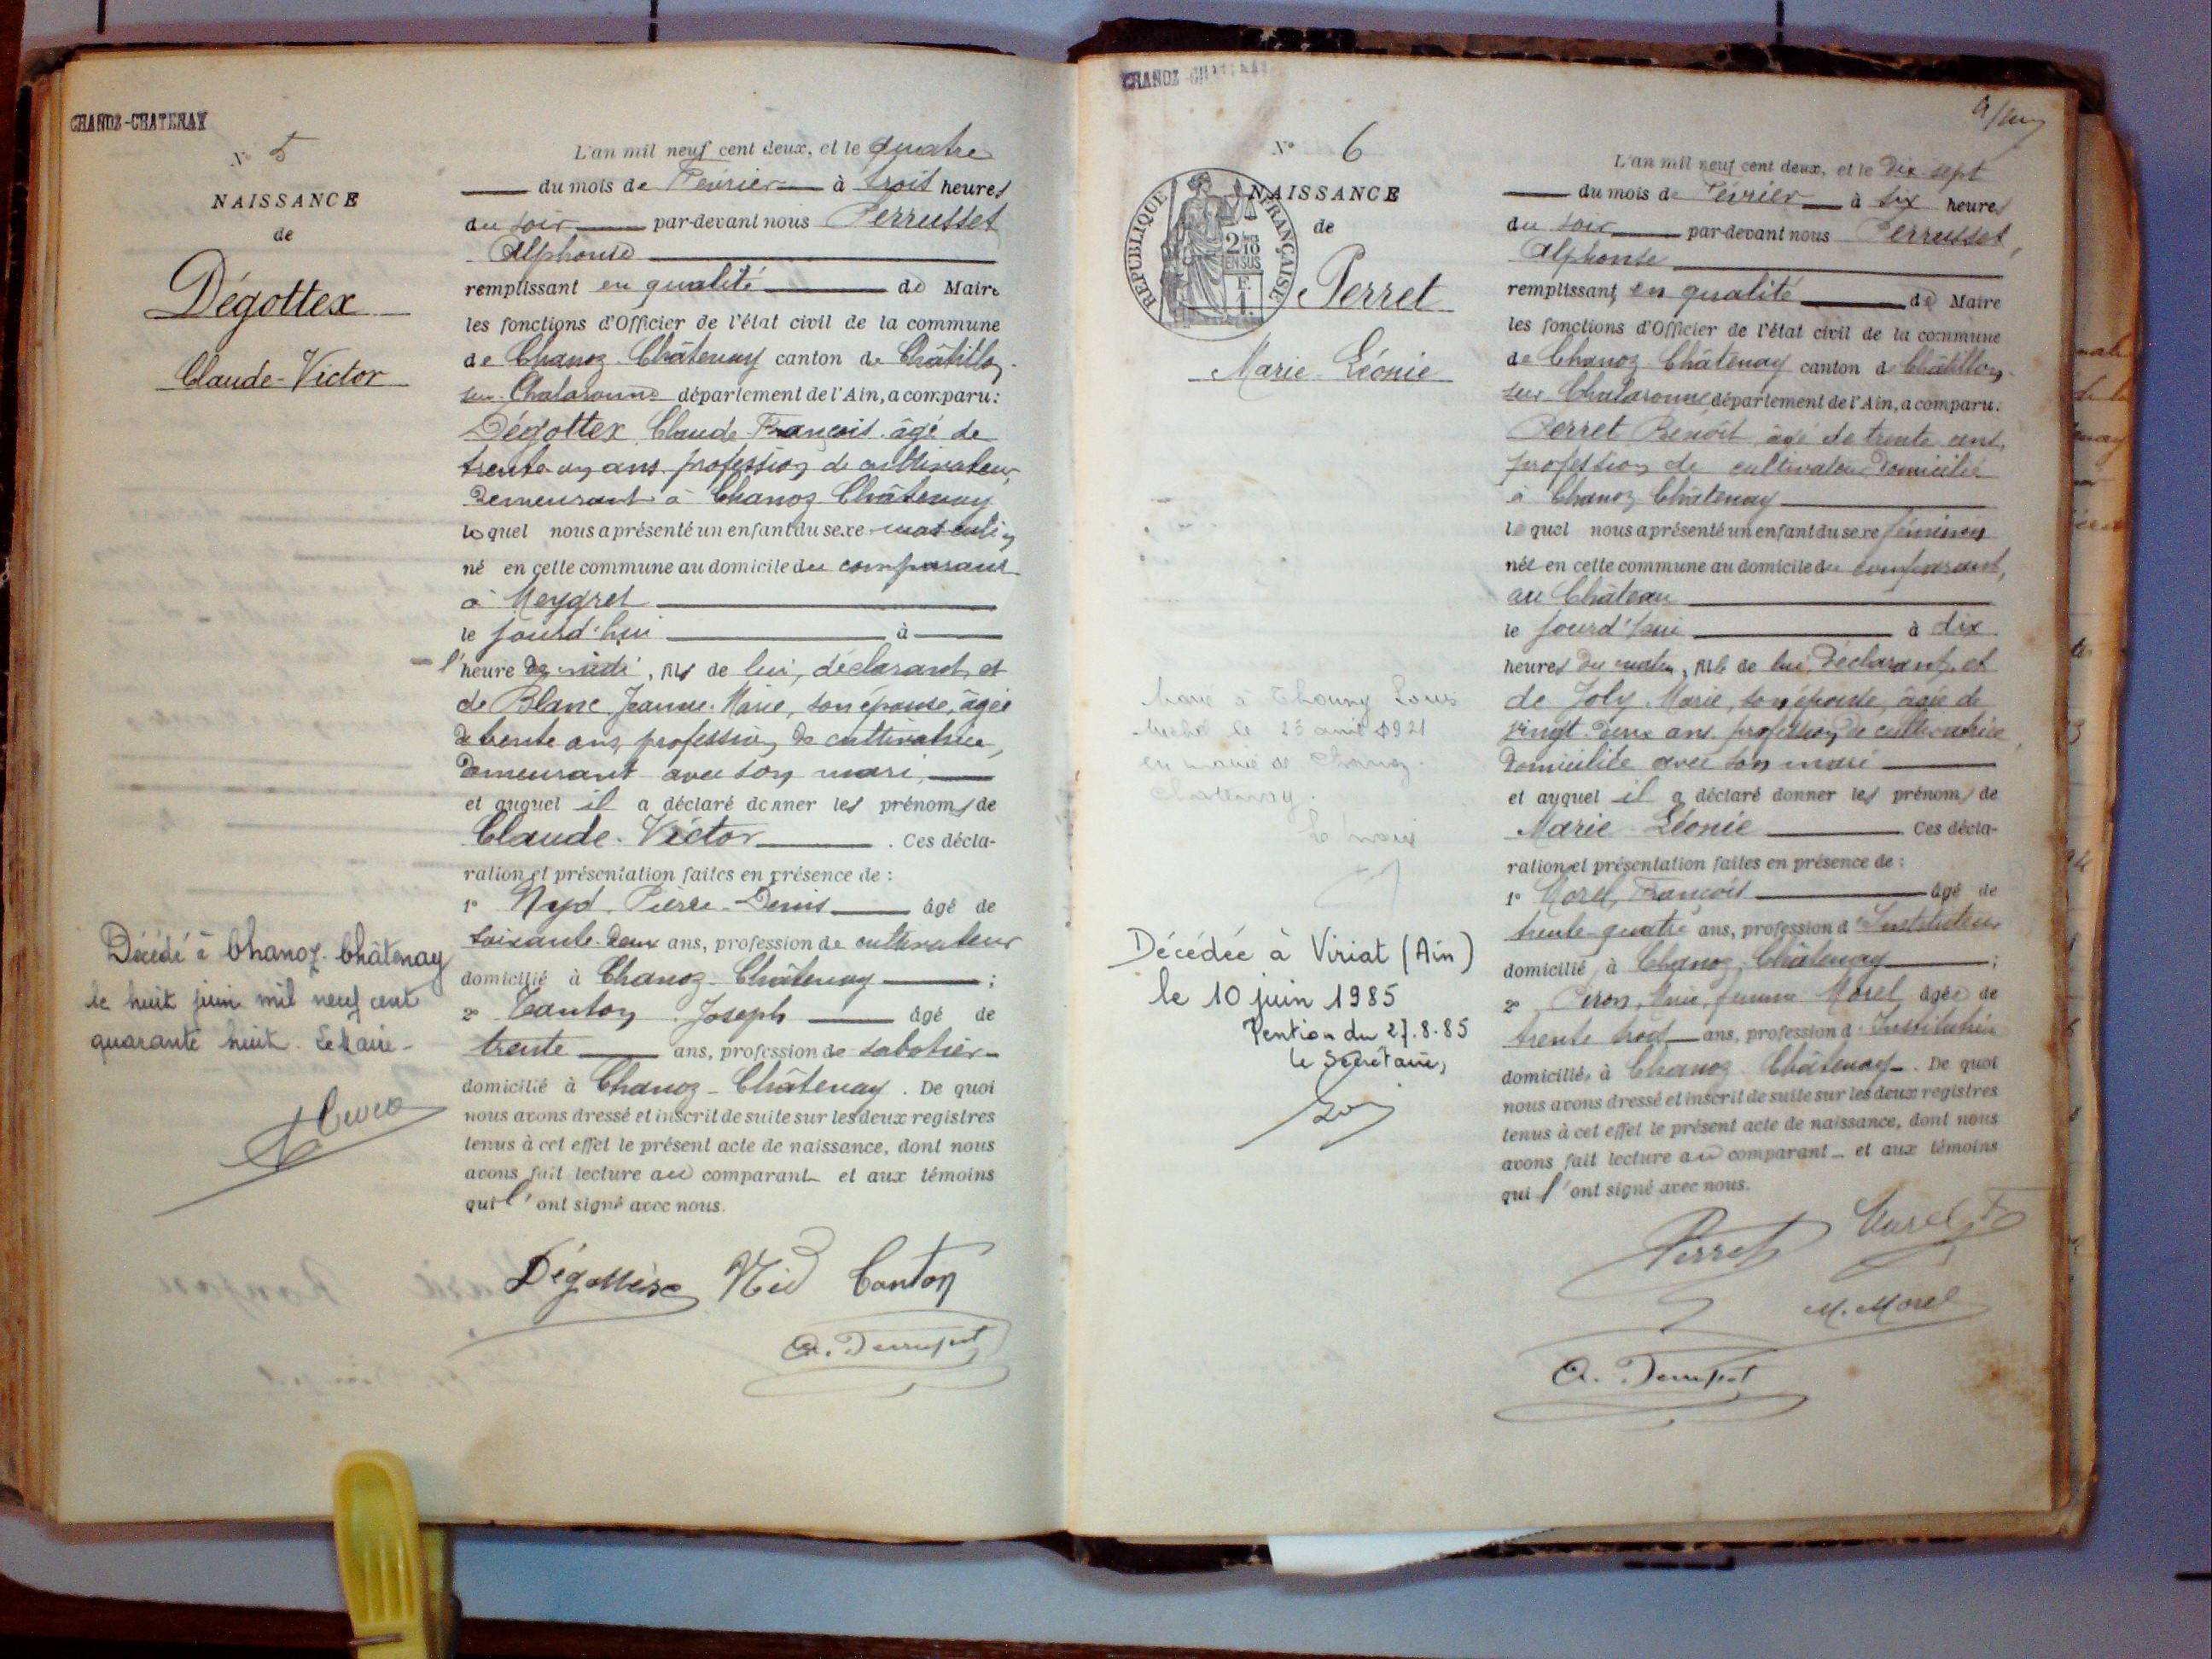 CHANOZ-CHATENAY
N° 5
NAISSANCE
de
Dégottex
Claude-Victor
L'an mil neuf cent deux, et le quatre
du mois de Février à trois heures
du soir par-devant nous Perrusset
Alphonse
remplissant en qualité de Maire
les fonctions d'Officier de l'état civil de la commune
de Chanoz-Châtenay canton de Châtillon-
sur-Chalaronne département de l'Ain, a comparu:
Dégottex Claude-François âgé de
trente un ans, profession de cultivateur,
demeurant à Chanoz Châtenay
lequel nous a présenté un enfant du sexe masculin
né en cette commune au domicile du comparant
à Meygret
le jourd'hui à
l'heure de midi, fils de lui, déclarant, et
de Blanc Jeanne-Marie, son épouse, âgée
de trente ans, profession de cultivatrice,
demeurant avec son mari,
et auquel il a déclaré donner les prénoms de
Claude-Victor. Ces décla-
ration et présentation faites en présence de :
1° Nyd Pierre-Denis âgé de
soixante-deux ans, profession de cultivateur
domicilié à Chanoz-Châtenay ;
2° Canton Joseph âgé de
trente ans, profession de sabotier
domicilié à Chanoz-Châtenay. De quoi
nous avons dressé et inscrit de suite sur les deux registres
tenus à cet effet le présent acte de naissance, dont nous
avons fait lecture au comparant et aux témoins
qui l'ont signé avec nous.
Décédé à Chanoz-Châtenay
le huit juin mil neuf cent
quarante huit. Le Maire-
Dégottex Nid Canton
A. Perrusset
CHANOZ-CHATENAY
N° 6
NAISSANCE
de
RÉPUBLIQUE FRANÇAISE
2/10 EN SUS
Perret
Marie-Léonie
L'an mil neuf cent deux, et le dix-sept
du mois de Février à six heures
du soir par-devant nous Perrusset,
Alphonse
remplissant en qualité de Maire
les fonctions d'Officier de l'état civil de la commune
de Chanoz-Châtenay canton de Châtillon-
sur-Chalaronne département de l'Ain, a comparu:
Perret Benoît, âgé de trente ans,
profession de cultivateur domicilié
à Chanoz-Châtenay
lequel nous a présenté un enfant du sexe féminin
née en cette commune au domicile du comparant,
au Château
le jourd'hui à dix
heures du matin, fille de lui, déclarant, et
de Joly Marie, son épouse, âgée de
vingt-deux ans, profession de cultivatrice,
domiciliée avec son mari
et auquel il a déclaré donner les prénoms de
Marie-Léonie. Ces décla-
ration et présentation faites en présence de :
1° Morel, François âgé de
trente-quatre ans, profession d'Instituteur
domicilié à Chanoz-Châtenay ;
2° Marie, femme Morel, âgée de
trente trois ans, profession d'Institutrice
domiciliée à Chanoz-Châtenay. De quoi
nous avons dressé et inscrit de suite sur les deux registres
tenus à cet effet le présent acte de naissance, dont nous
avons fait lecture au comparant et aux témoins
qui l'ont signé avec nous.
le 23 avril 1921
en mairie de Chanoz-
Chatenay.
Le maire
Décédée à Viriat (Ain)
le 10 juin 1985
Mention du 27.8.85
le Secrétaire,
Perret Morel F
M. Morel
A. Perrusset